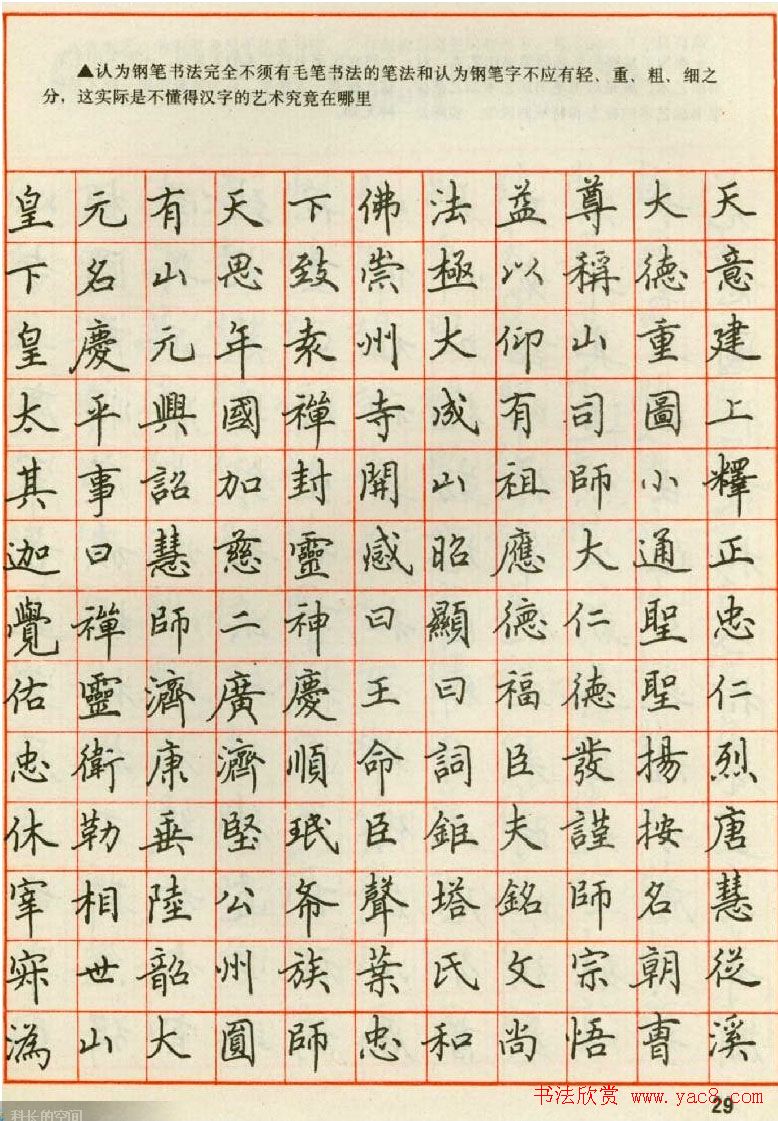 ▲认为钢笔书法完全不须有毛笔书法的笔法和认为钢笔字不应有轻、重、粗、细之
分，这实际是不懂得汉字的艺术究竟在哪里
皇元有天下佛法益尊大天
下名山思致崇極以稱德意
皇慶元年袁州大仰山重建
太平興國禪寺成有司圖上
其事詔加封開山祖師小釋
迦曰慧慈靈感昭應大通正
覺禪師二神曰顯德仁聖忠
佑靈濟廣慶王曰福德聖仁
忠衛康濟順命詞臣發揚烈
休勒垂堅珉臣鉅夫謹按唐
宰相陸公希聲塔銘師名慧
寂世韶州族葉氏文宗朝從
溈山大圓師忠和尚悟曹溪
书法欣赏 www.yac8.com
29
科长的空间